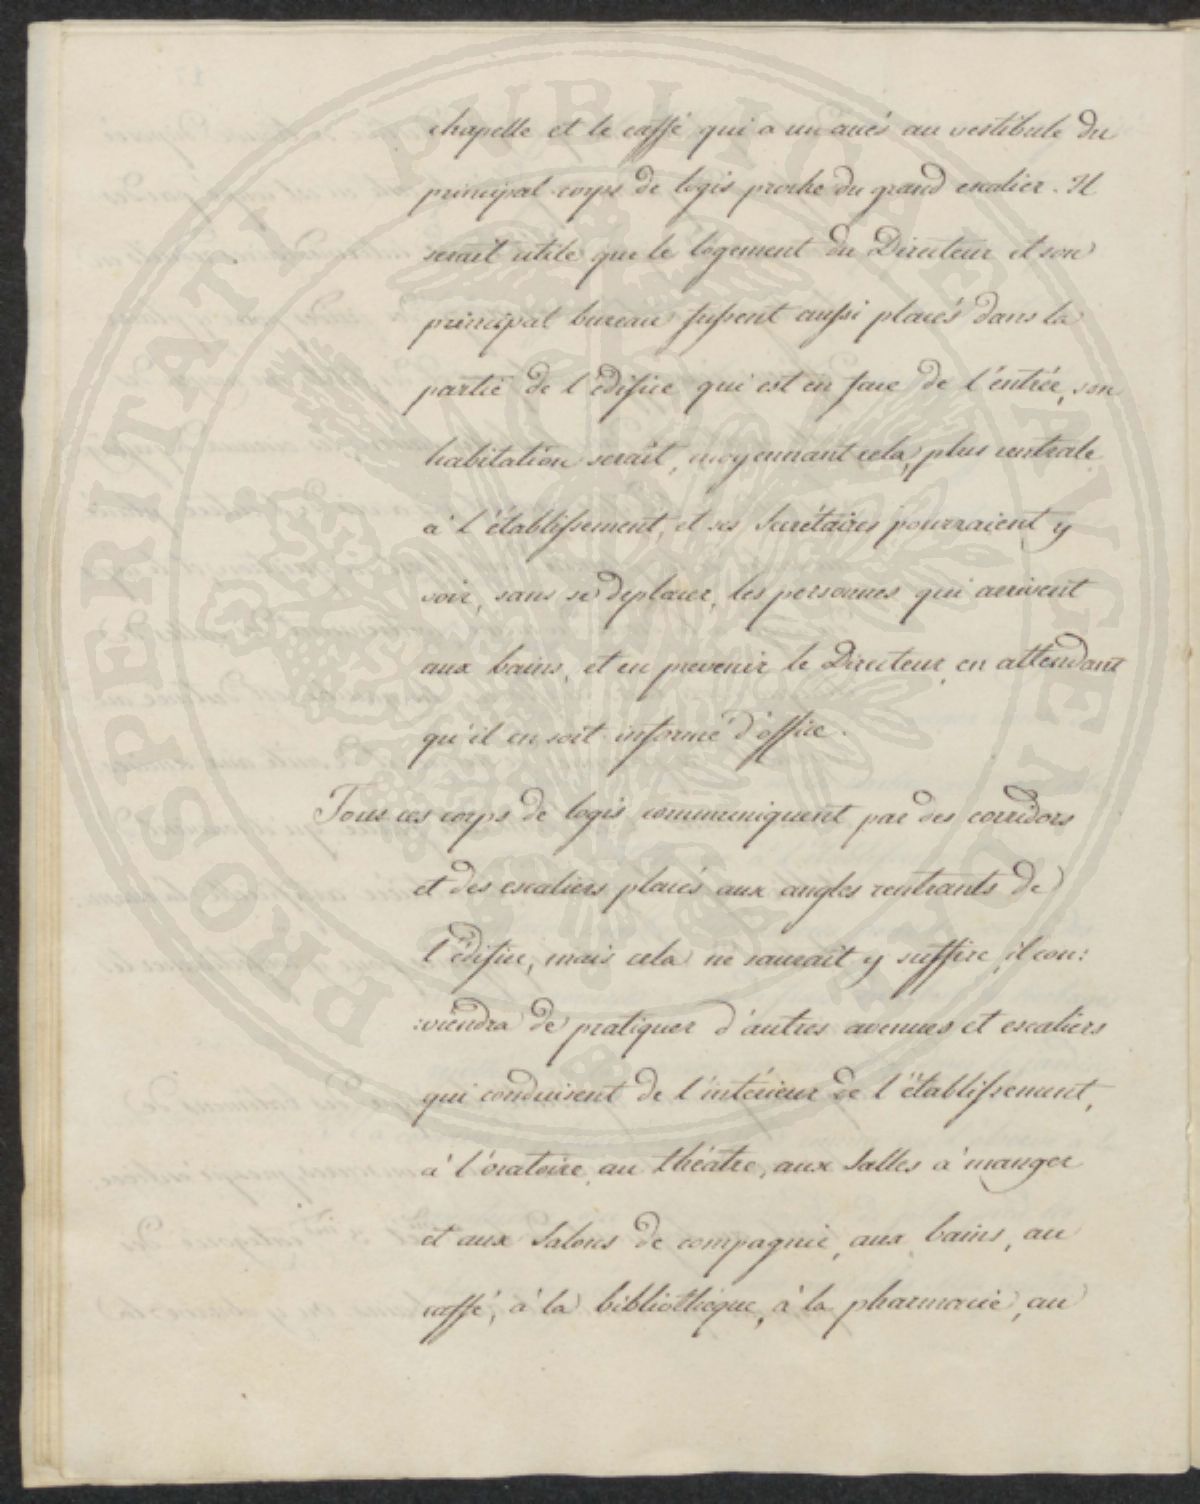 chapelle et le caffé qui a un accès au vestibule du
principal corps de logis proche du grand escalier. Il
serait utile que le logement du Directeur et son
principal bureau fussent aussi placés dans la
partie de l'édifice qui est en face de l'entrée, son
habitation serait, moyennant cela, plus centrale
à l'établissement, et ses Secrétaires pourraient y
voir, sans se deplacer, les personnes qui arrivent
aux bains, et en prevenir le Directeur, en attendant
qu'il en soit informé d'office.
Tous ces corps de logis communiquent par des corridors
et des escaliers placés aux angles rentrants de
l'édifice, mais cela ne saurait y suffire, il con:
:viendra de pratiquer d'autres avenues et escaliers
qui conduisent de l'intérieur de l'établissement,
à l'oratoire, au théatre, aux Salles à manger
et aux Salons de compagnie, aux bains, au
caffé, à la bibliothèque, à la pharmacie, au
PROSPERITATI PUBLICAE AUGENDAE